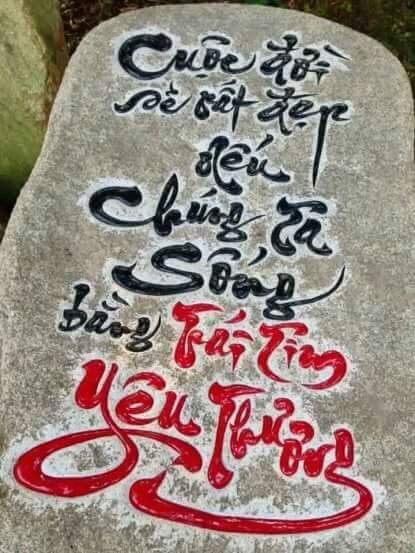 Cuộc đời
sẽ rất đẹp
nếu
Chúng Ta
Sống
bằng Trái Tim
Yêu Thương